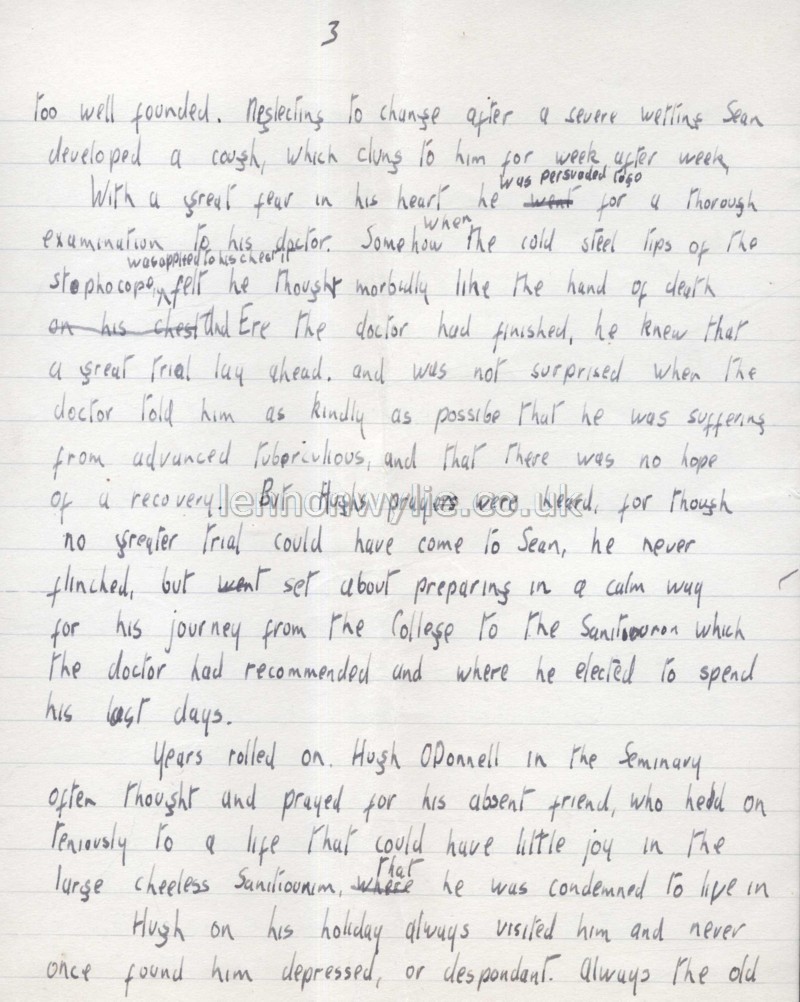 3
too well founded. Neglecting to change after a severe wetting Sean
developed a cough, which clung to him for week after week,
was persuaded to go
With a great fear in his heart he went for a thorough
when
examination to his doctor. Somehow the cold steel tips of the
was applied to his chest it
stephocope, felt he thought morbidly like the hand of death
on his chest And Ere the doctor had finished, he knew that
a great trial lay ahead. and was not surprised when the
doctor told him as kindly as possibe that he was suffering
from advanced tuberculious, and that there was no hope
of a recovery. But Hughs prayers were heard, for though
lennonwylie.co.uk
no greater trial could have come to Sean, he never
flinched, but went set about preparing in a calm way
for his journey from the College to the which
the doctor had recommended and where he elected to spend
his last days.
Years rolled on. Hugh ODonnell in the Seminary
often thought and prayed for his absent friend, who held on
teniously to a life that could have little joy in the
that
large cheeless where he was condemned to live in
Hugh on his holiday always visited him and never
once found him depressed, or despondant. Always the old